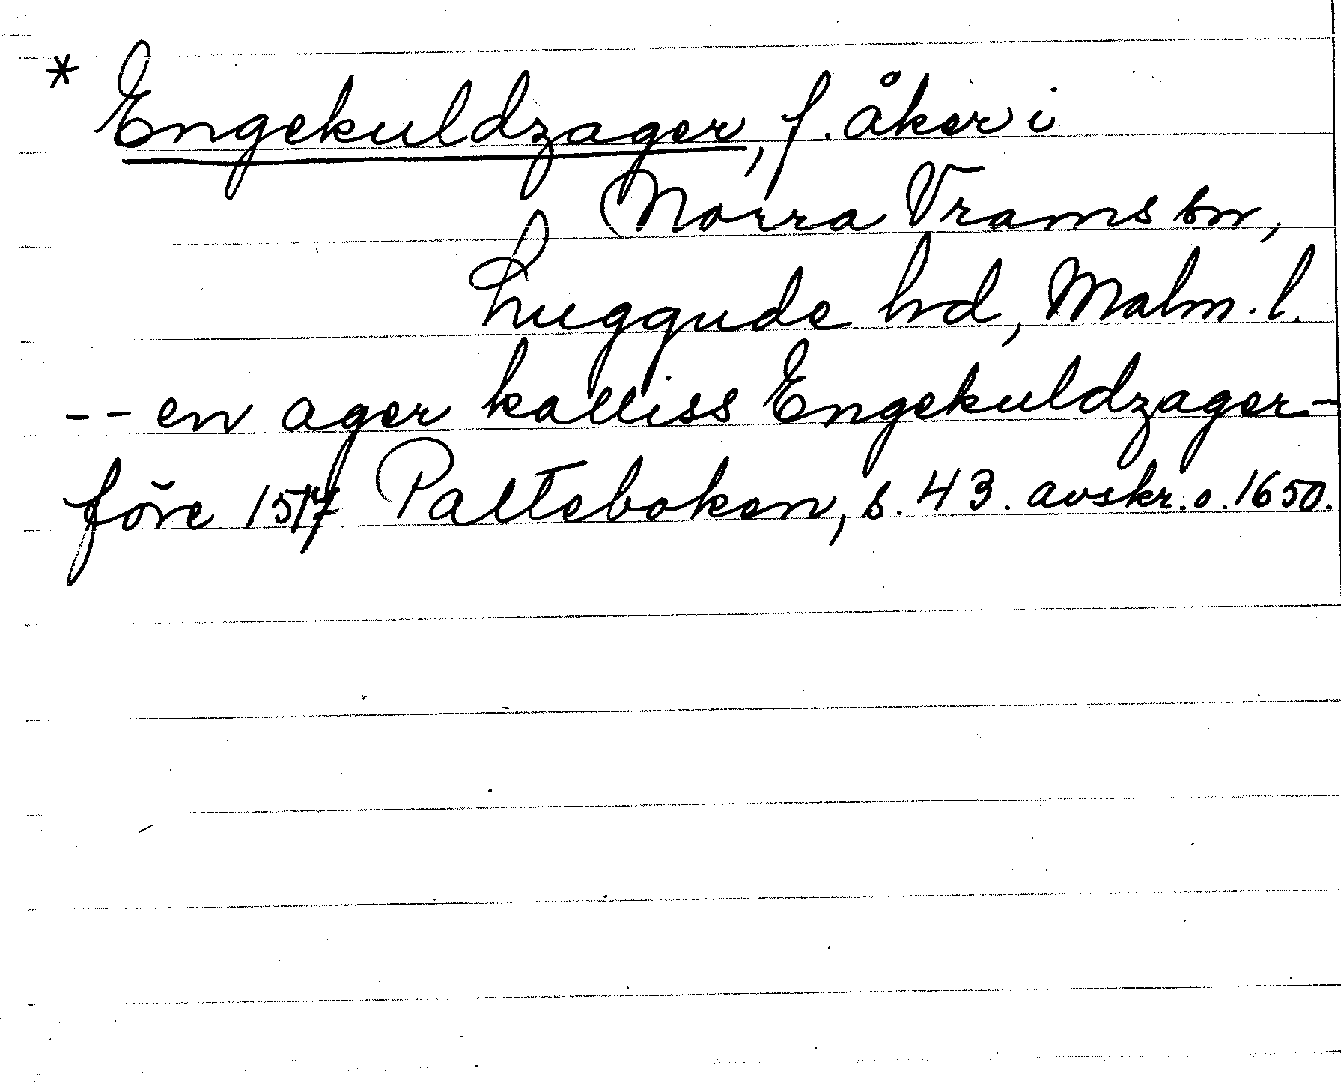 * Engekuldzager, f. åker i
Norra Vrams sn,
Luggude hd, Malm. l.
-- en ager kalliss Engekuldzager-
före 1517 Palteboken, s. 43. avskr. o. 1650.